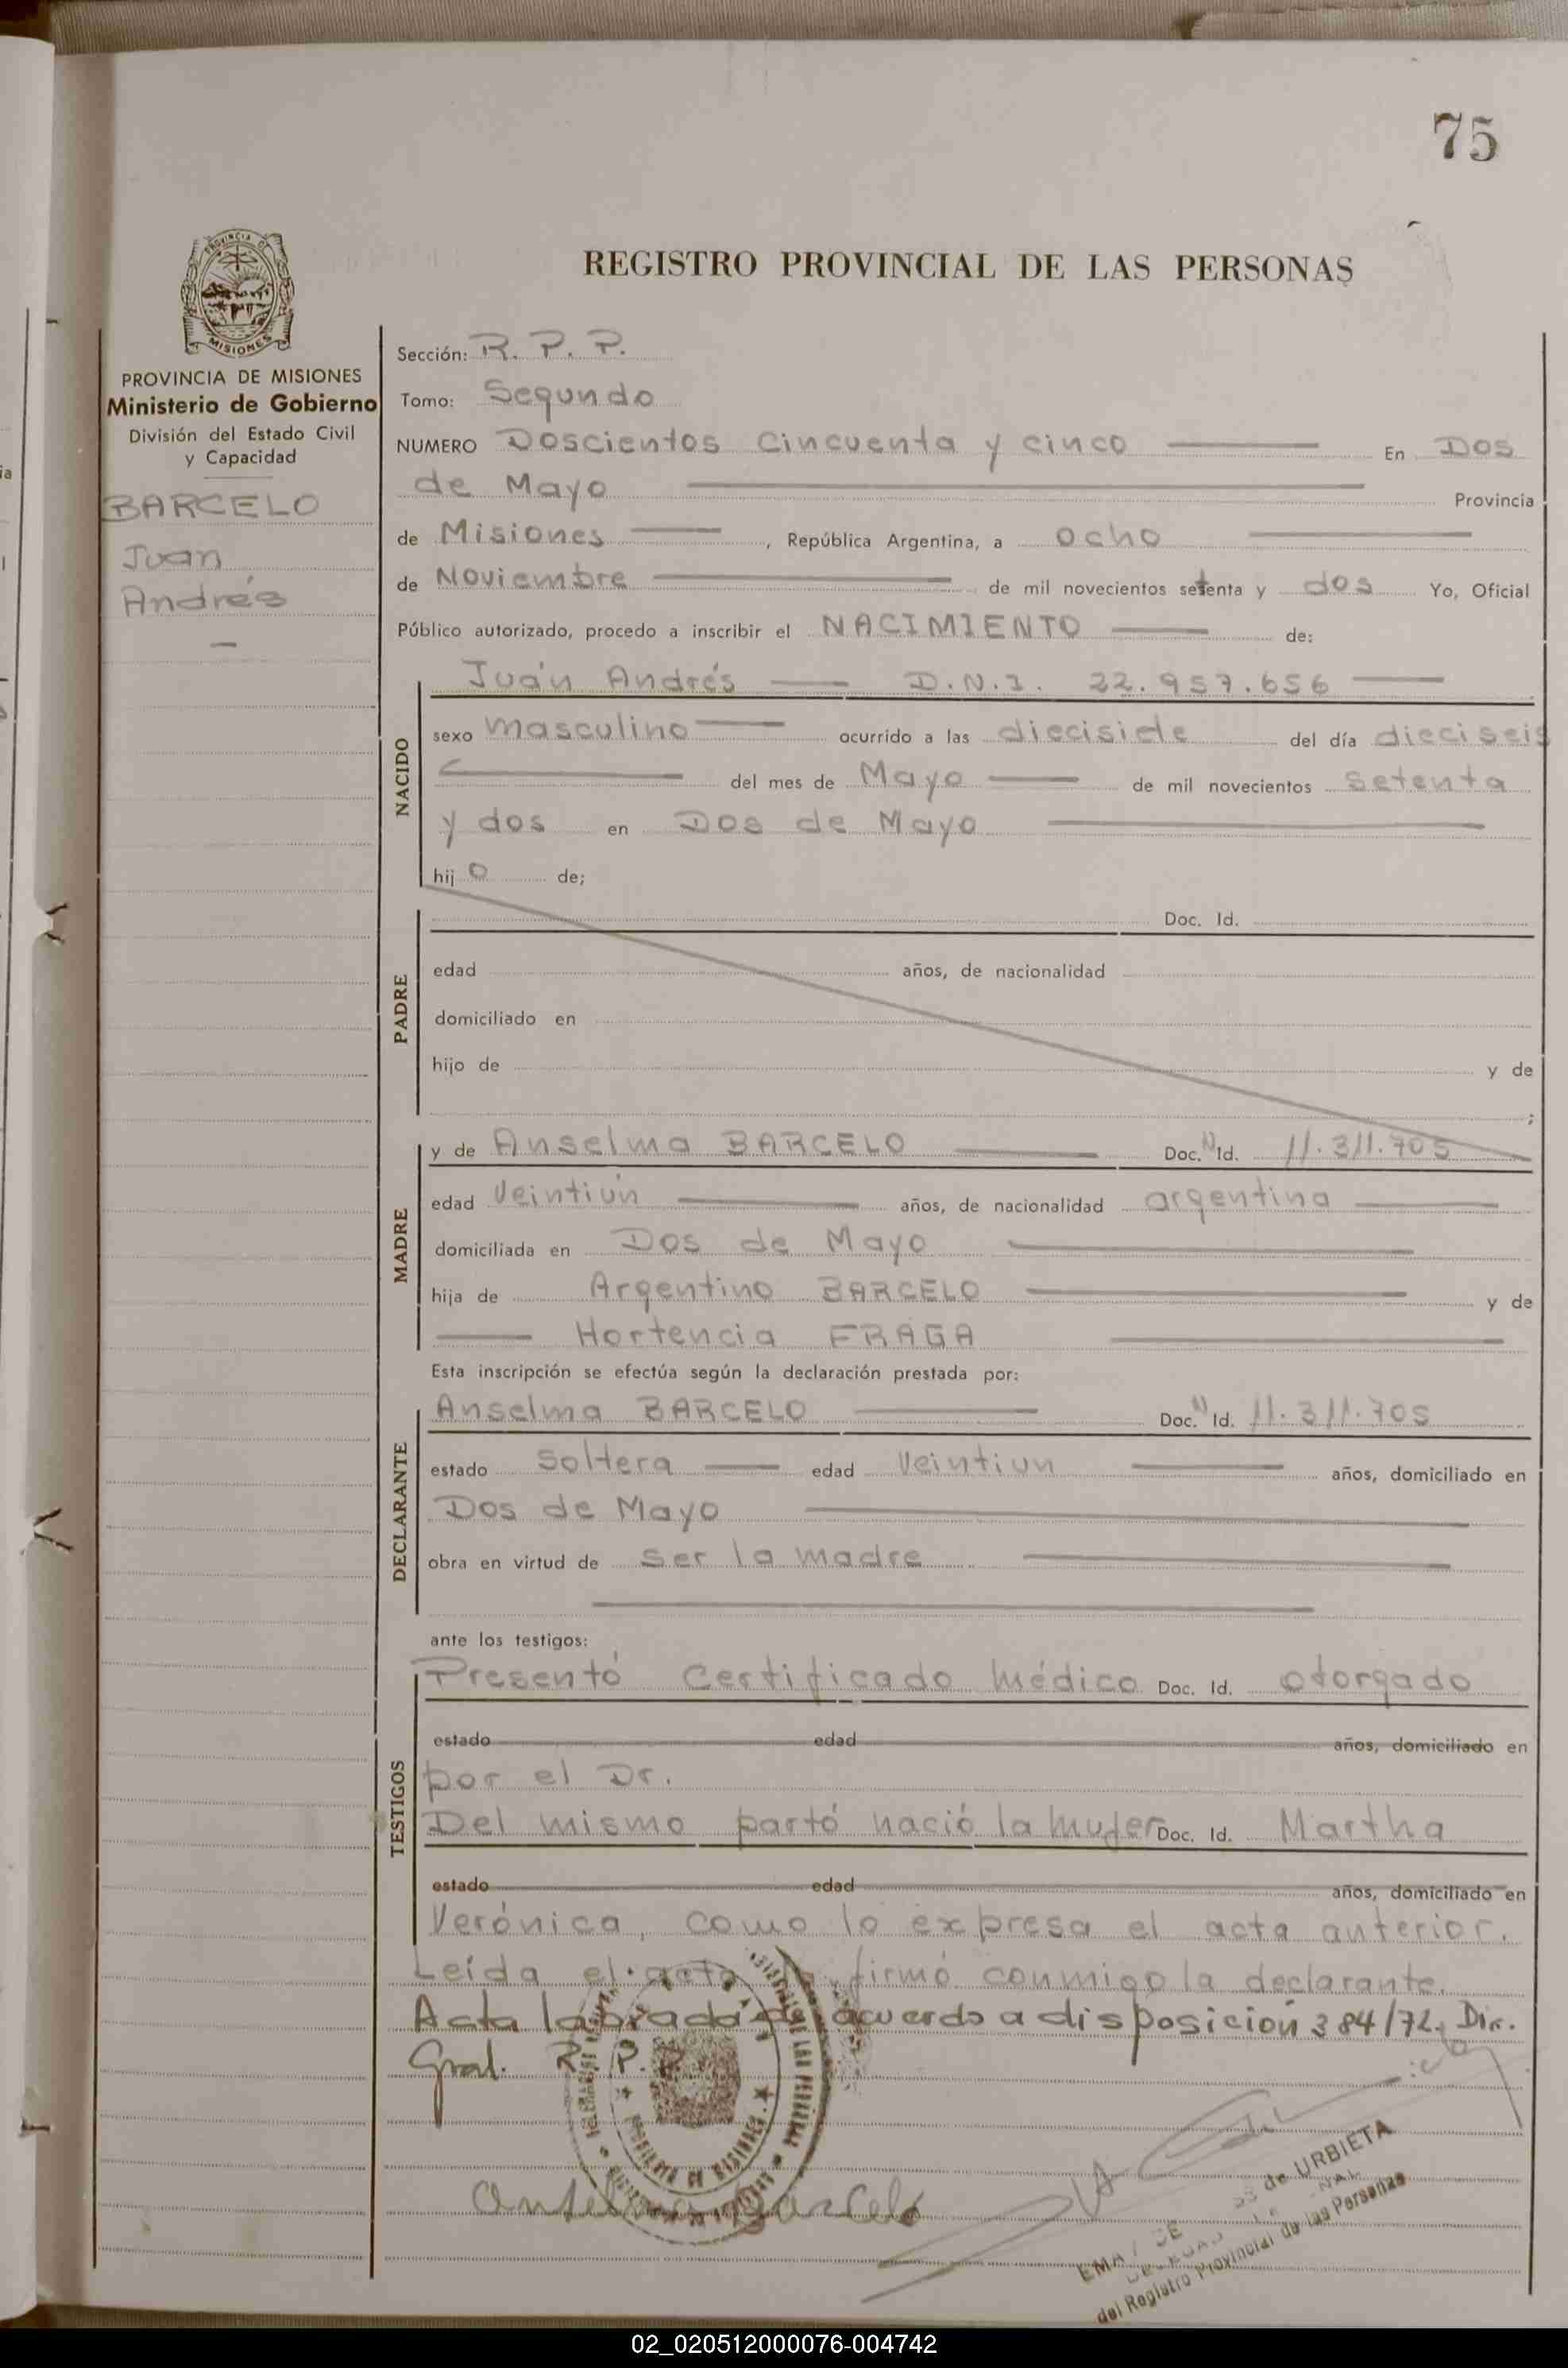 75
PROVINCIA DE
MISIONES
REGISTRO PROVINCIAL DE LAS PERSONAS
PROVINCIA DE MISIONES
Ministerio de Gobierno
División del Estado Civil
y Capacidad
BARCELO
Juan
Andrés
Sección: R. P. P.
Tomo: Segundo
NUMERO Doscientos Cincuenta y cinco En Dos
de Mayo Provincia
de Misiones , República Argentina, a ocho
de Noviembre de mil novecientos setenta y dos Yo, Oficial
Público autorizado, procedo a inscribir el NACIMIENTO de:
NACIDO
Juán Andrés D.N.I. 22.957.656
sexo masculino ocurrido a las diecisiete del día dieciseis
del mes de Mayo de mil novecientos setenta
y dos en Dos de Mayo
hijo de;
PADRE
Doc. Id.
edad años, de nacionalidad
domiciliado en
hijo de y de
;
MADRE
y de Anselma BARCELO Doc. Id. 11.311.705
edad Veintiún años, de nacionalidad argentina
domiciliada en Dos de Mayo
hija de Argentino BARCELO y de
Hortencia FRAGA
Esta inscripción se efectúa según la declaración prestada por:
DECLARANTE
Anselma BARCELO Doc. Id. 11.311.705
estado Soltera edad Veintiun años, domiciliado en
Dos de Mayo
obra en virtud de ser la madre
ante los testigos:
TESTIGOS
Presentó Certificado Médico Doc. Id. otorgado
estado edad años, domiciliado en
por el Dr.
Del mismo partó nació la mujer Doc. Id. Martha
estado edad años, domiciliado en
Verónica, como lo expresa el acta anterior.
Leída el acta firmó conmigo la declarante.
Acta labrada de acuerdo a disposición 384/72. Dir.
Gral. R. P. P.
Anselma Barcelo
de URBIETA
del Registro Provincial de las Personas
02_020512000076-004742